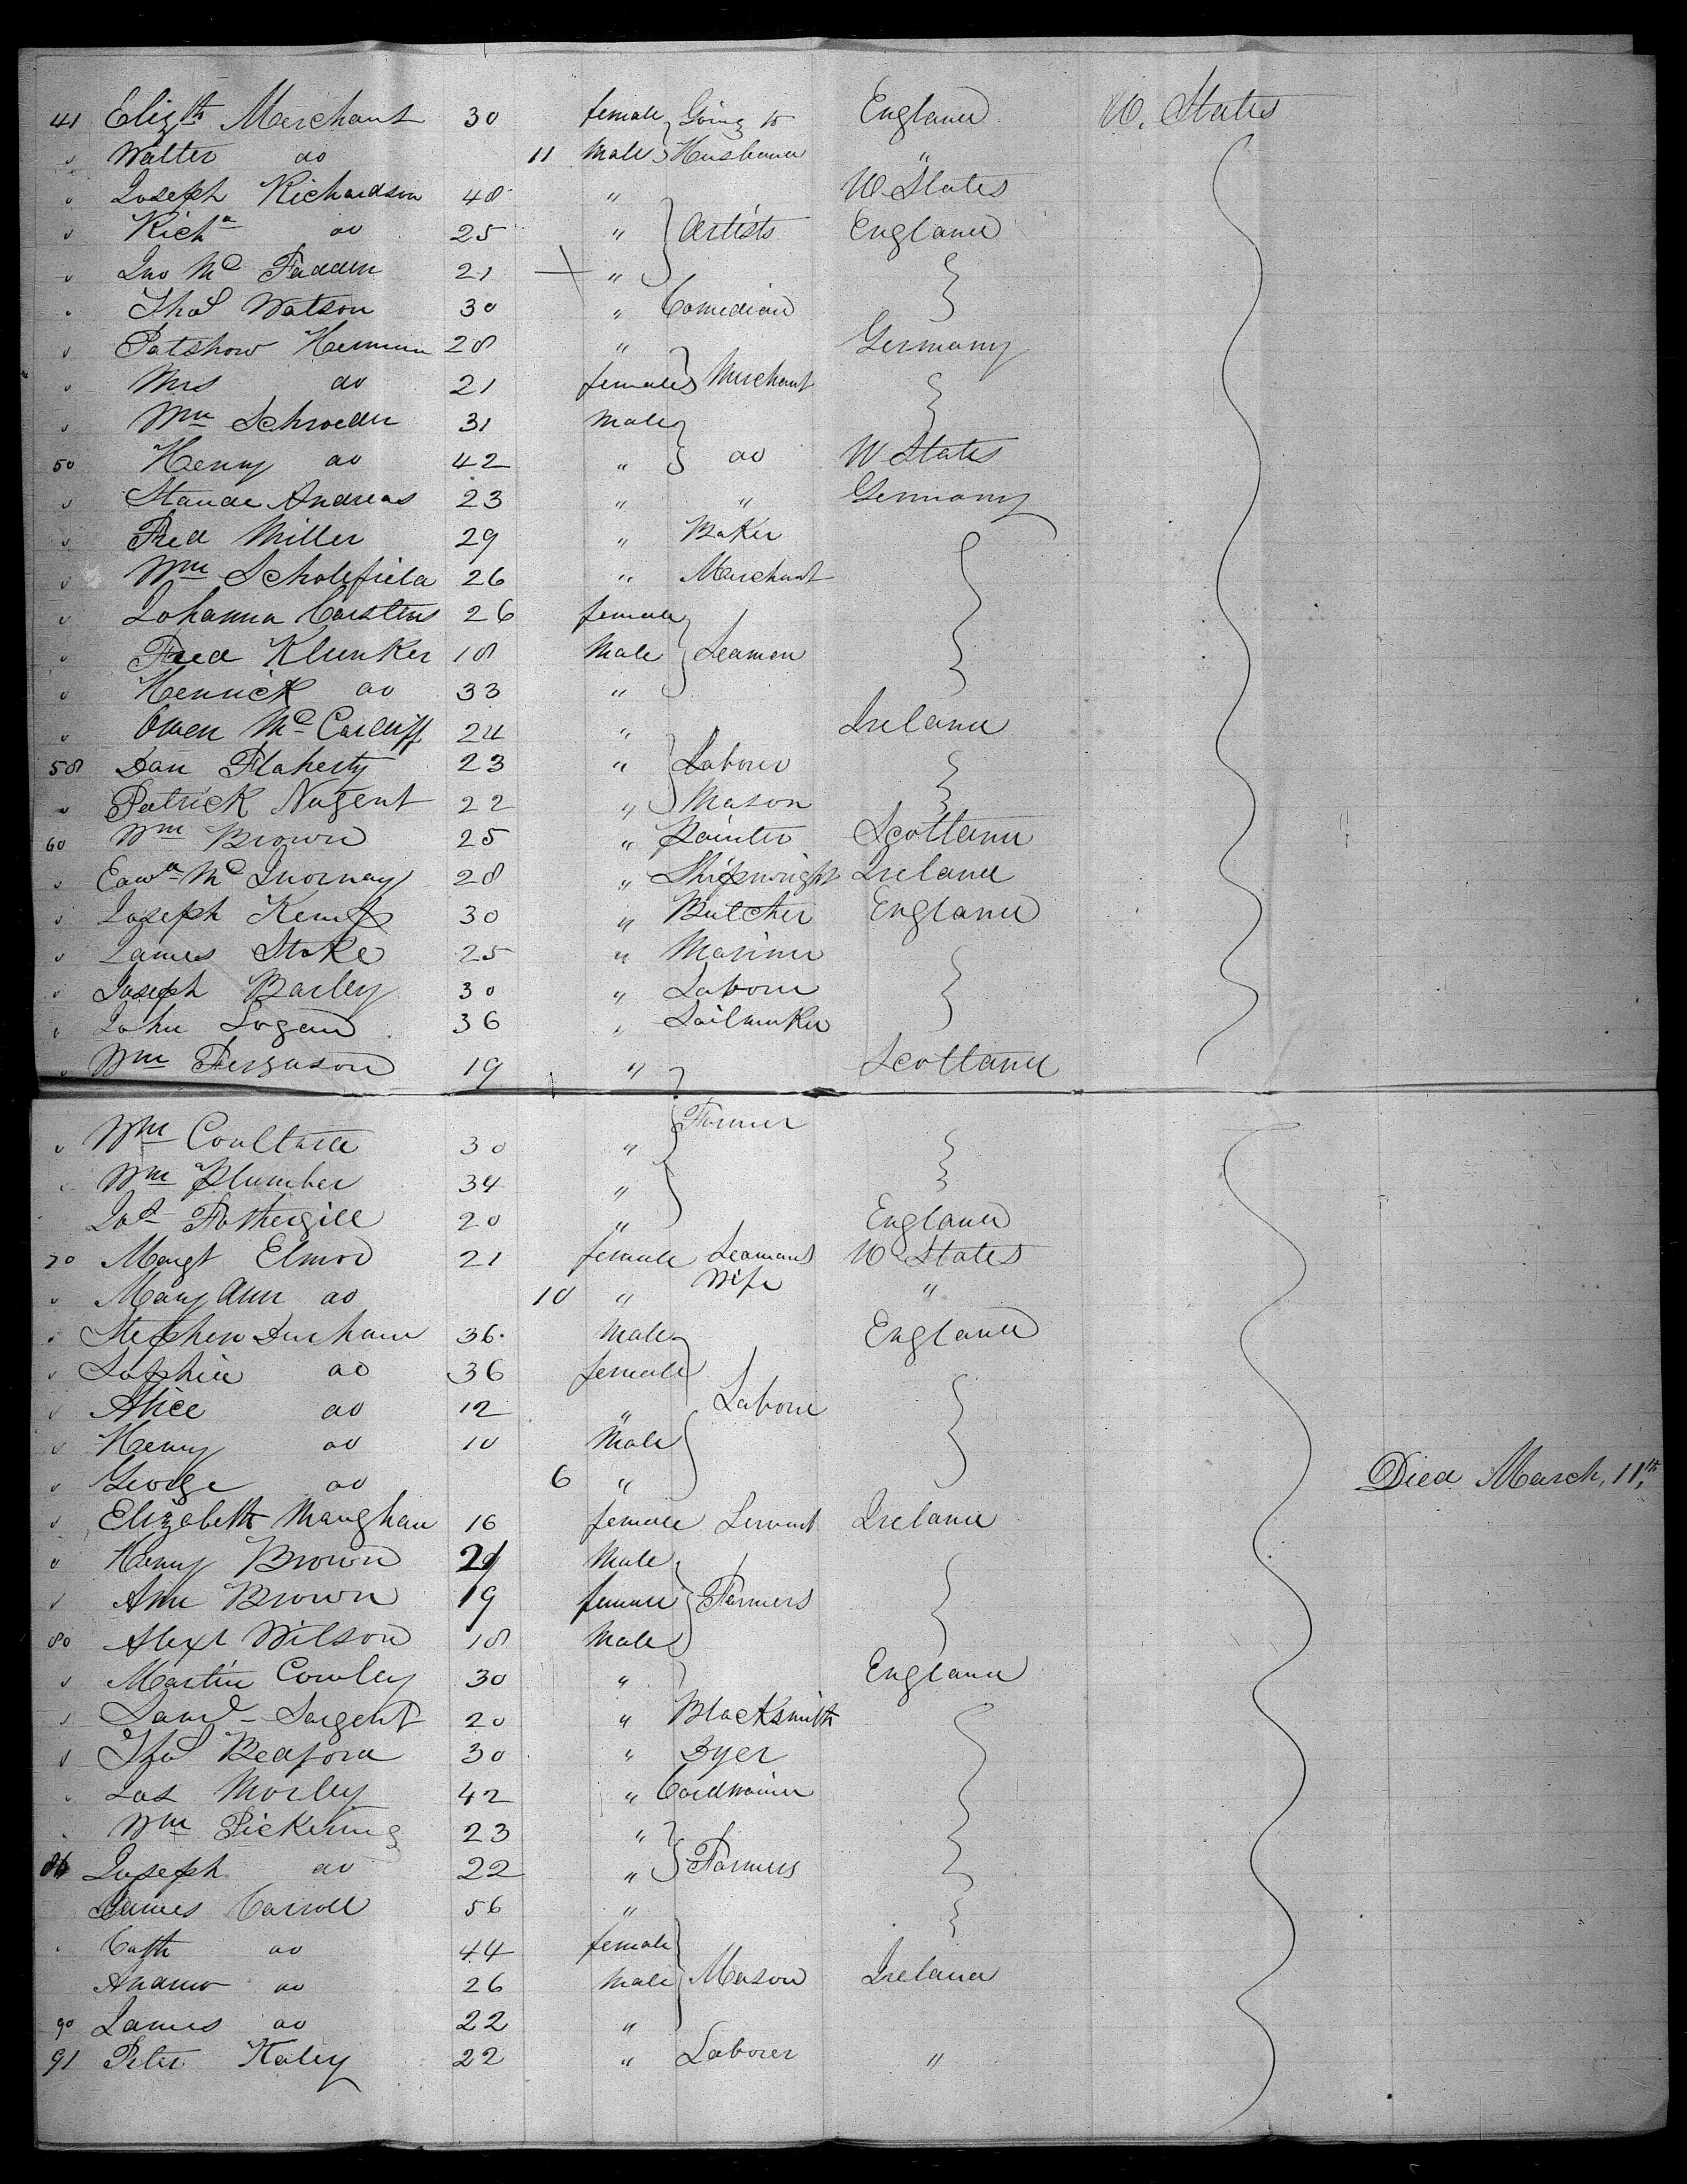 41 Elizth Merchant 30 female Going to England U. States
Walter do 11 Male Husband "
Joseph Richardson 48 " U States
Richd do 25 " Artists England
Jno Mc Fadden 21 "
Thos Watson 30 " Comedian
Patshow Herman 28 " Germany
Mrs do 21 female Merchant
Wm Schroeder 31 Male
50 Henry do 42 " do U States
Staude Andreas 23 " " Germany
Fred Miller 29 " Baker
Wm Scholefield 26 " Merchant
Johanna Carstens 26 female
Fred Klunker 18 Male Seamen
Henrick do 33 "
Owen Mc 24 " Ireland
58 Dan Flaherty 23 " Laborer
Patrick Nugent 22 " Mason
60 Wm Brown 25 " Painter Scotland
Edwd Mc 28 " Shipwright Ireland
Joseph Kemp 30 " Butcher England
James Stoke 25 " Mariner
Joseph Barley 30 " Laborer
John Logan 36 " Sailmaker
Wm Ferguson 19 " Scotland
Wm 30 " Farmer
Wm Plumber 34 "
Jos Fothergill 20 " England
70 Margt Elmod 21 female Seamans U States
Wife
Mary Ann do 10 " "
Stephen Durham 36 Male England
Sophia do 36 female
Alice do 12 " Laborer
Henry do 10 Male
George do 6 " Died March, 11th,
Elizabeth Maughan 16 female Servant Ireland
Henry Brown 21 Male
Ann Brown 19 female Farmers
80 Alexr Wilson 18 Male
Martin Cowley 30 " England
Saml Sargent 20 " Blacksmith
Thos Bedford 30 " Dyer
Jas Morley 42 " Cordwainer
Wm Pickering 23 "
86 Joseph do 22 " Farmers
James Carroll 56 "
Cath do 44 female
Andrew do 26 Male Mason Ireland
90 James do 22 "
91 Peter Haley 22 " Laborer "